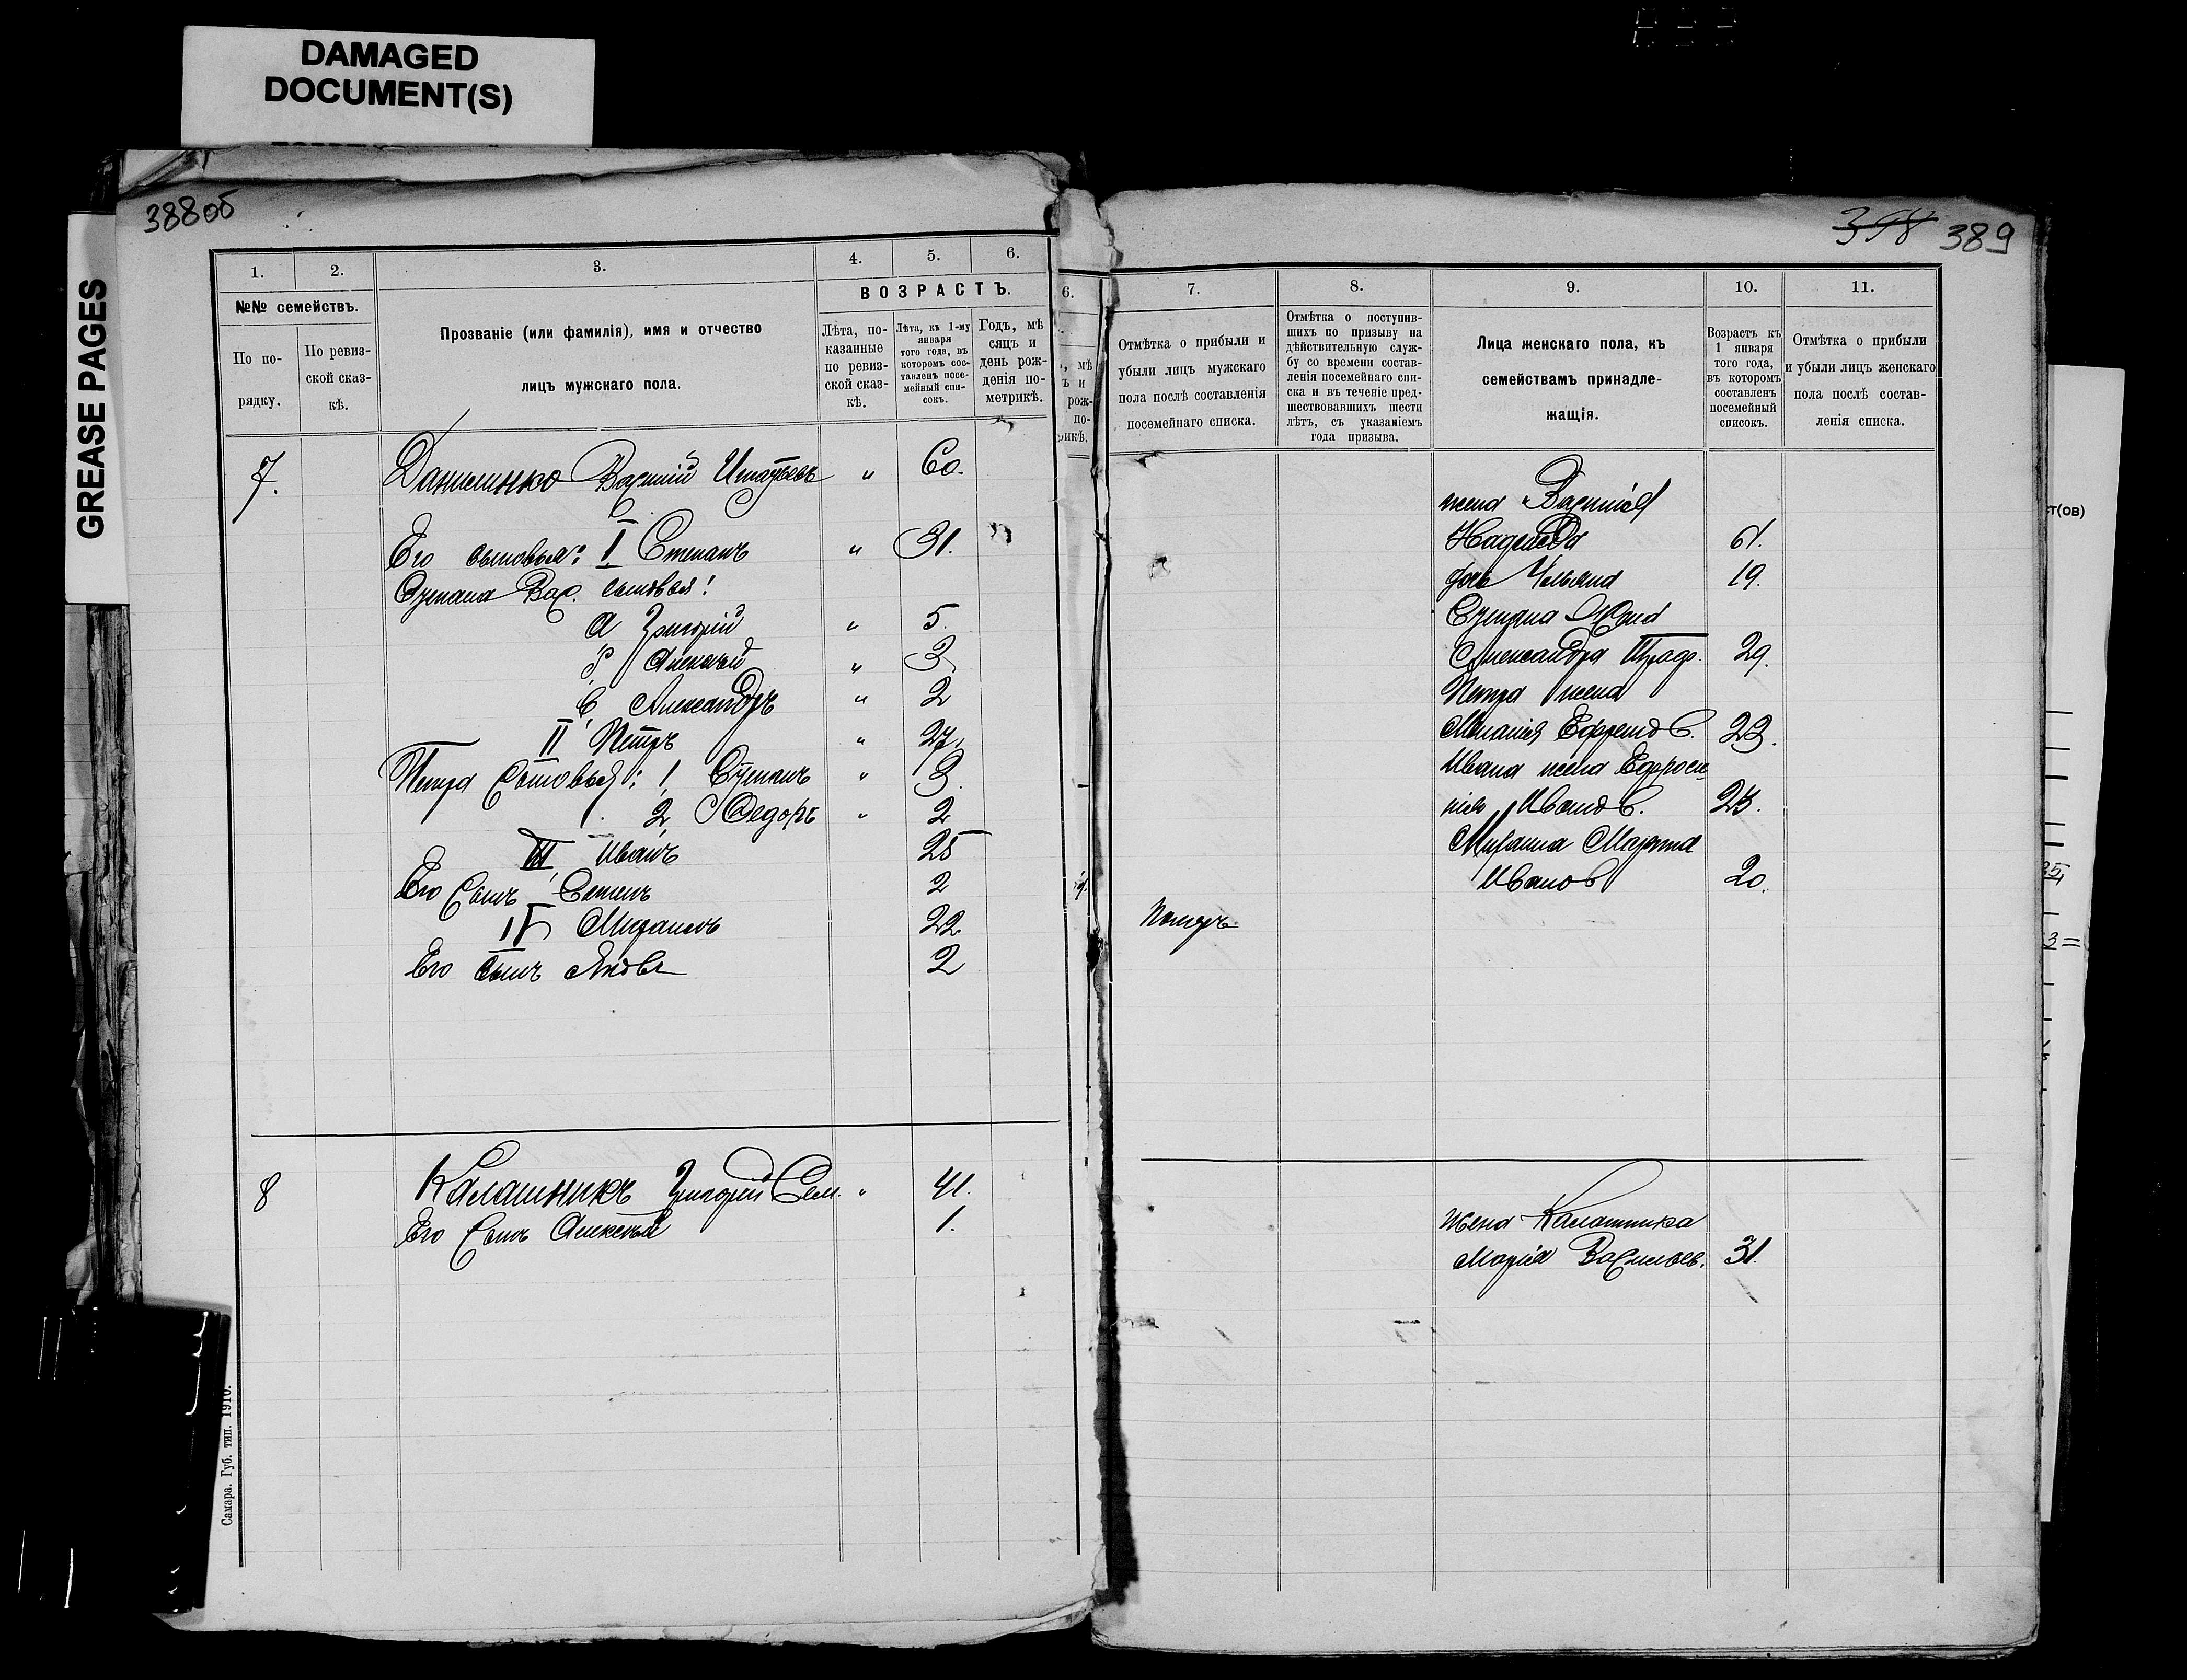 DAMAGED
DOCUMENT(S)
GREASE PAGES
388об
1.
2.
3.
4.
5.
6.
№№ семействъ.
По по-
рядку.
По ревиз-
ской сказ-
кѣ.
Прозваніе (или фамилія), имя и отчество
лицъ мужскаго пола.
ВОЗРАСТЪ.
Лѣта, по-
казанные
по ревиз-
ской сказ-
кѣ.
Лѣта, къ 1-му
января
того года, въ
которомъ сос-
тавленъ посе-
мейный спи-
сокъ.
Годъ, мѣ
сяцъ и
день рож-
денія по-
метрикѣ.
7. Данилинко Василій Игнатьевъ " 60.
Его сыновья: I Степанъ " 31.
Степана Вас. сыновья:
а Григорій " 5.
Алексѣй " 3
с Александръ " 2
II Петръ " 27.
Петра Сыновья: 1, Степанъ " 3.
2, Федоръ " 2
III Иванъ 25
Его Сынъ Семенъ 2
IV Михаилъ 22
Его сынъ Яковъ 2
8 Калашникъ Григорій Сем. " 41.
Его Сынъ Алексѣй 1.
Самара. Губ. тип. 1910.
6.
398 389
7.
8.
9.
10.
11.
Отмѣтка о прибыли и
убыли лицъ мужскаго
пола послѣ составленія
посемейнаго списка.
Отмѣтка о поступив-
шихъ по призыву на
дѣйствительную служ-
бу со времени состав-
ленія посемейнаго спи-
ска и въ теченіе пред-
шествовавшихъ шести
лѣтъ, съ указаніемъ
года призыва.
Лица женскаго пола, къ
семействамъ принадле-
жащія.
Возрастъ къ
1 января
того года,
въ которомъ
составленъ
посемейный
списокъ.
Отмѣтка о прибыли
и убыли лицъ женскаго
пола послѣ состав-
ленія списка.
жена Василія
Надежда 61.
дочь Ульяна 19.
Степана Жена
Александра 29.
Петра жена
Меланія Ефремов. 23.
Ивана жена Ефроси
нія Иванов. 23.
Михаила
Иванов 20.
Померъ
жена Калашника
Марія Васильев. 31.
ст(ов)